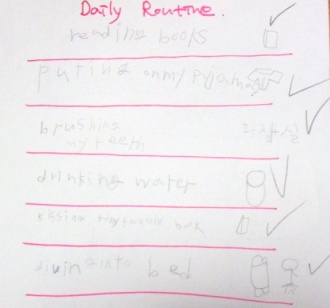 Daily Routine.
reading books
puting on my pyjamas
brushing
my teeth
drinking water
kissing my book
into bed